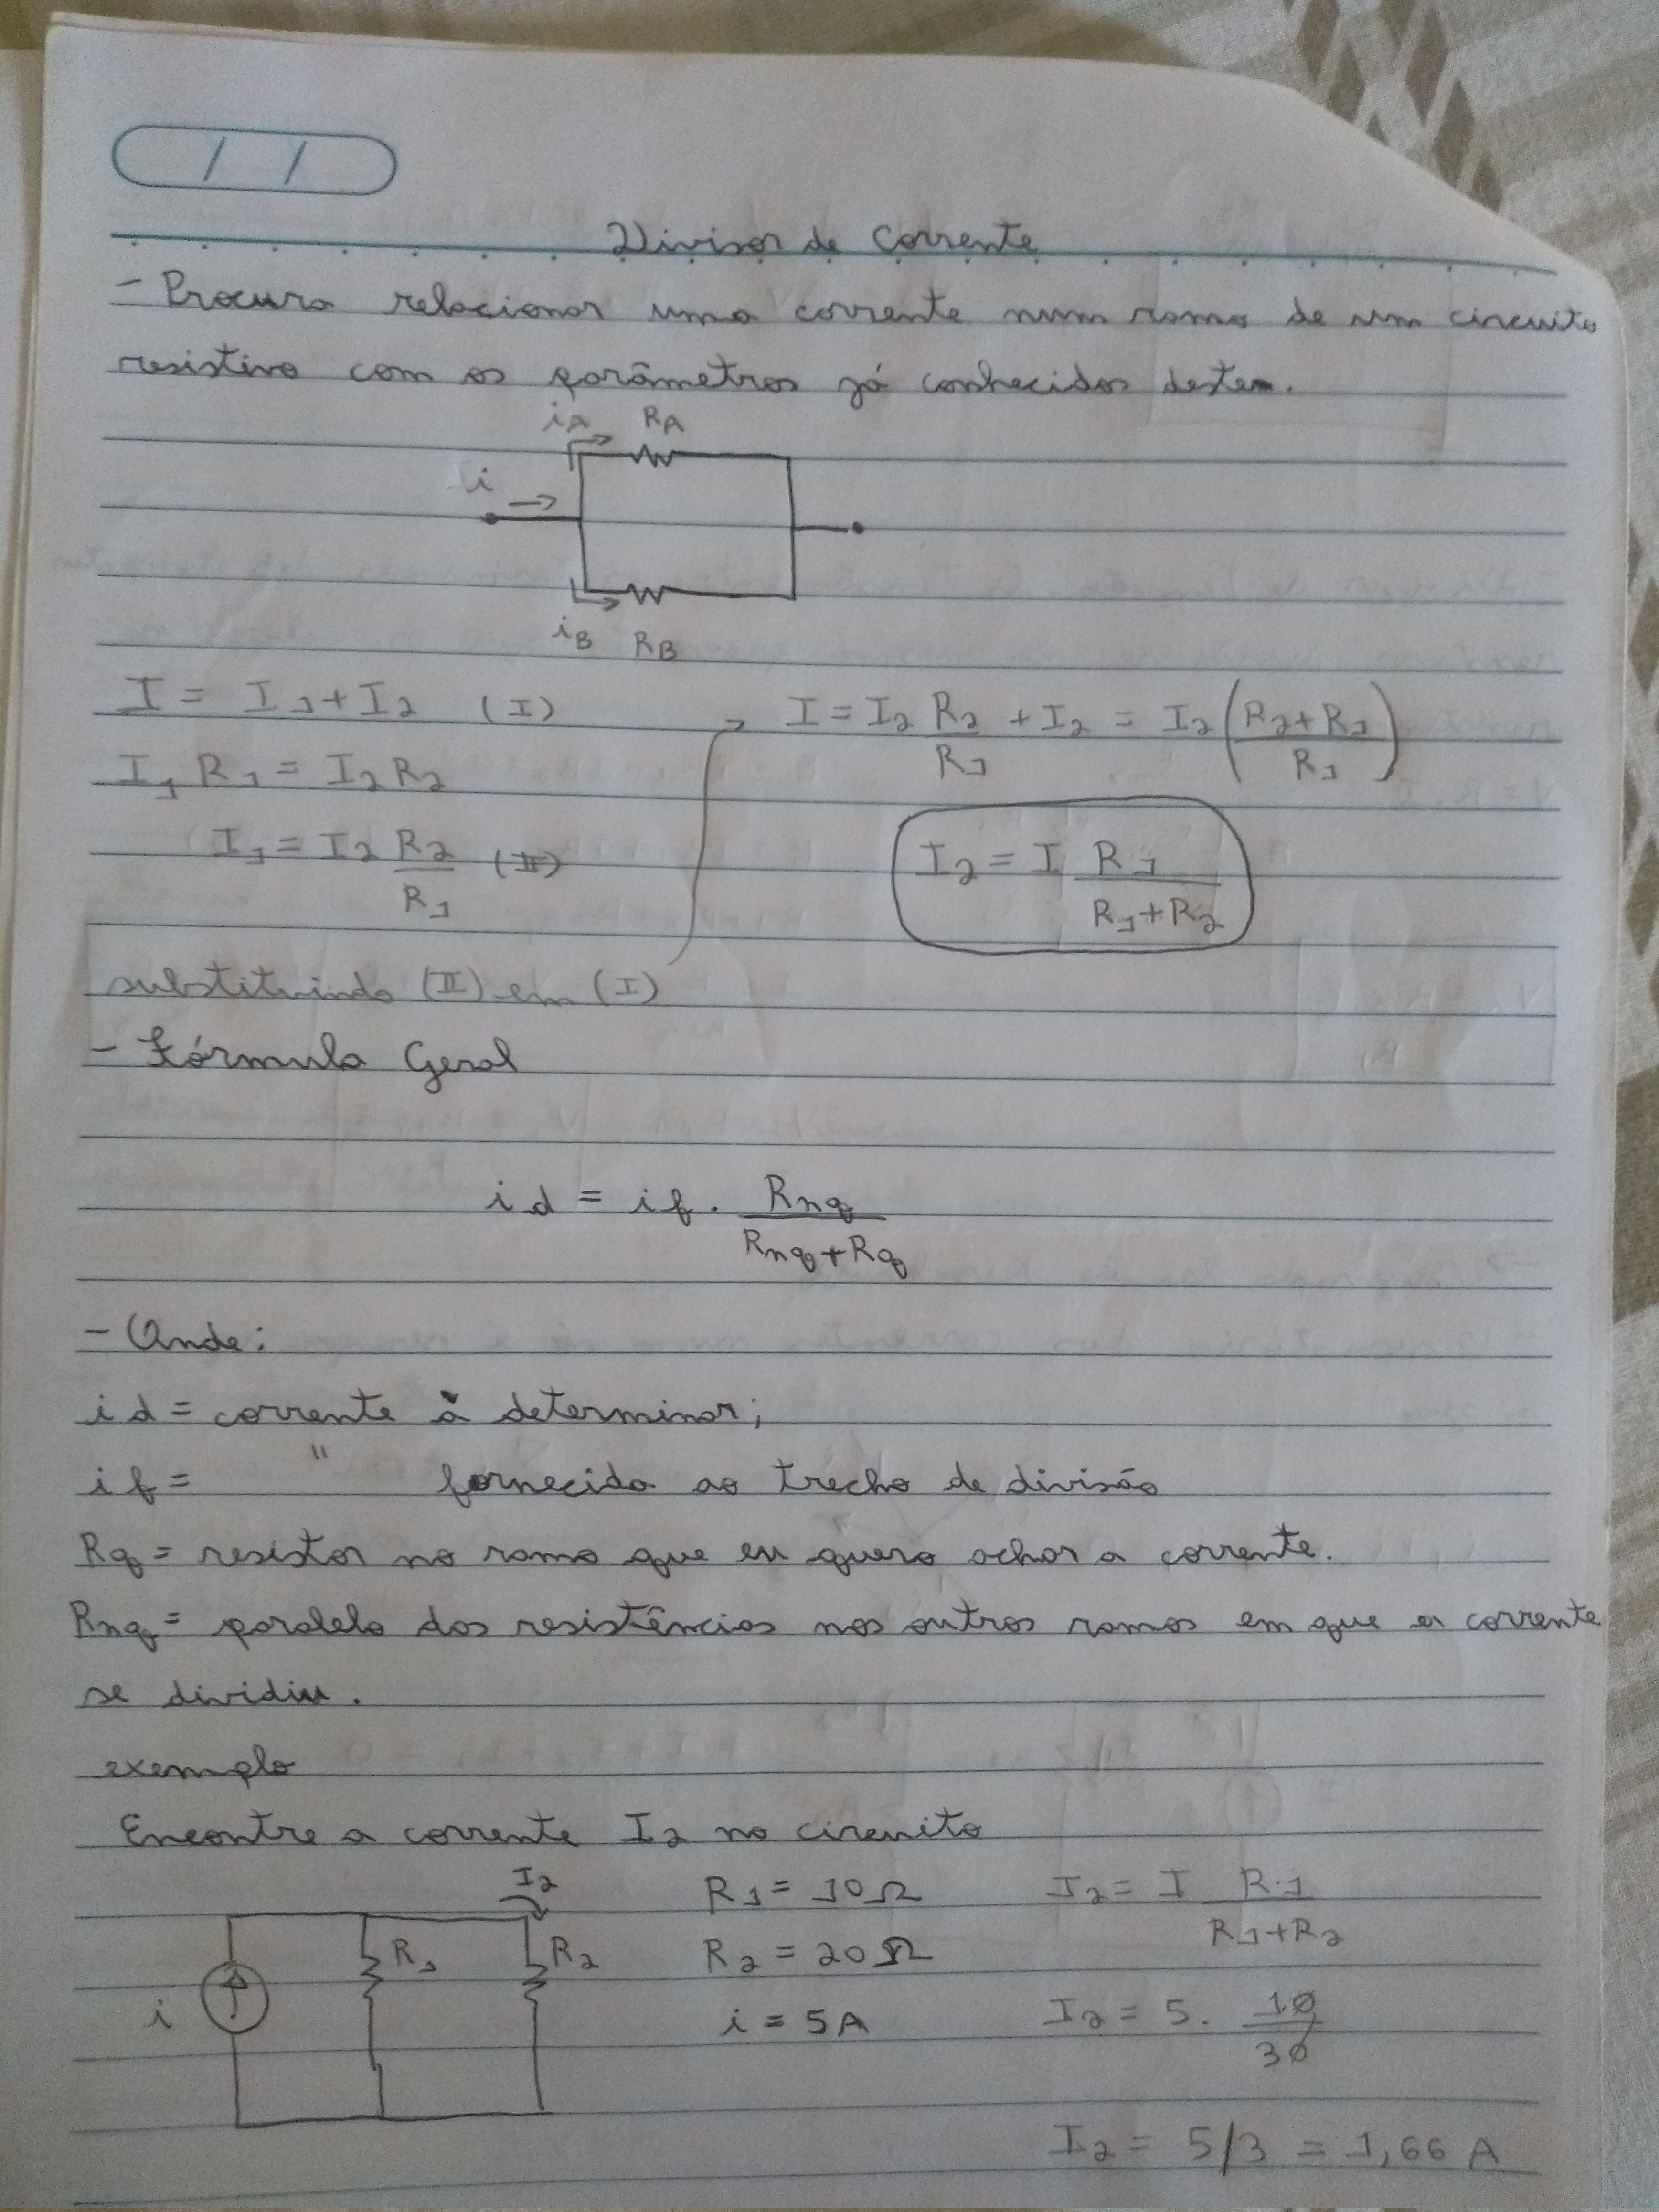 / /
Divisor de Corrente
- Procura relacionar uma corrente num ramo de um circuito
resistivo com os parâmetros já conhecidos deste.
iA RA
i
iB RB
I = I1 + I2 (I)
I1 R1 = I2 R2
I1 = I2 R2/R1 (II)
substituindo (II) em (I)
I = I2 R2/R1 + I2 = I2 (R2+R1/R1)
I2 = I R1/R1+R2
- Fórmula Geral
id = if . Rnq/Rnq+Rq
- Onde:
id = corrente à determinar;
if = " fornecida ao trecho de divisão
Rq = resistor no ramo que eu quero achar a corrente.
Rnq = paralelo das resistências nos outros ramos em que a corrente
se dividiu.
exemplo
Encontre a corrente I2 no circuito
I2
R1 R2
i
R1 = 10Ω
R2 = 20Ω
i = 5A
I2 = I R1/R1+R2
I2 = 5. 10/30
I2 = 5/3 = 1,66 A